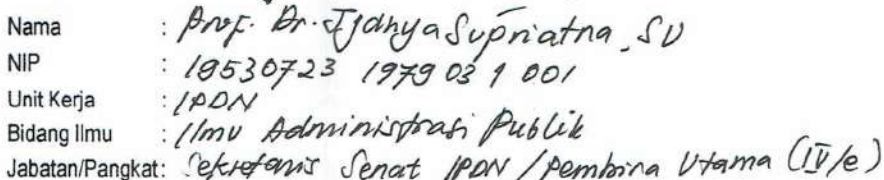 Nama : Prof. Dr. Tjahya Supriatna, SU
NIP : 19530723 1979 03 1 001
Unit Kerja : IPDN
Bidang Ilmu : Ilmu Administrasi Publik
Jabatan/Pangkat: Sekretaris Senat IPDN / Pembina Utama (IV/e)